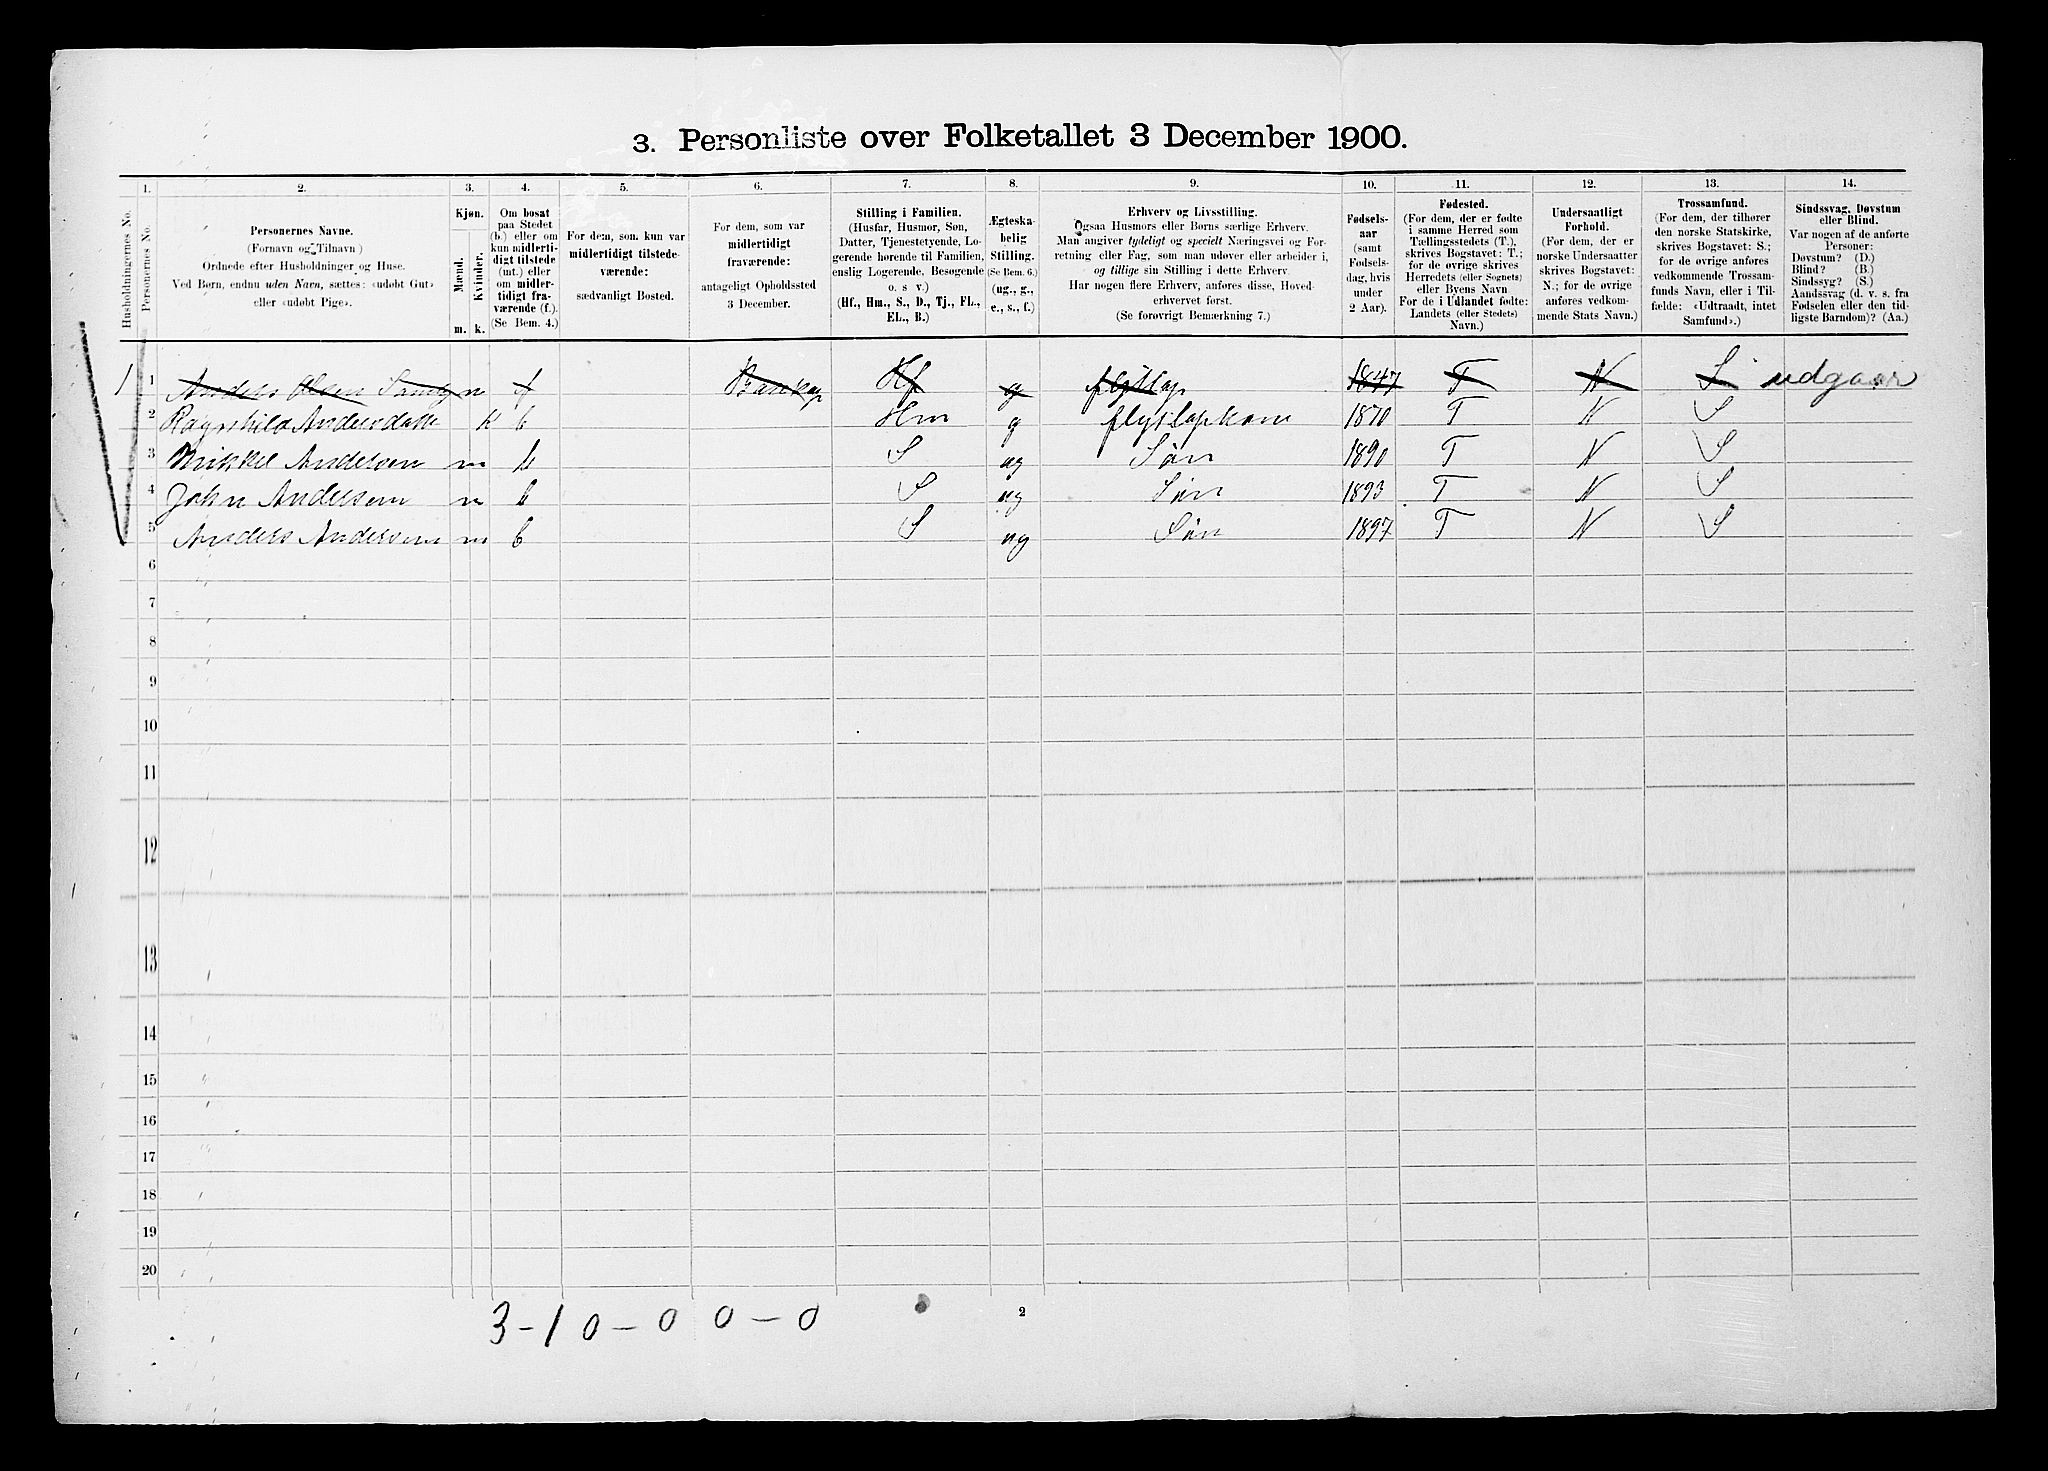 3. Personliste over Folketallet 3 December 1900.
Husholdningernes No.
1.
Personernes No.
2.
Personernes Navne.
(Fornavn og Tilnavn)
Ordnede efter Husholdninger og Huse.
Ved Børn, endnu uden Navn, sættes: «udøbt Gut»
eller «udøbt Pige».
3.
Kjøn.
Mænd.
Kvinder.
m. k.
4.
Om bosat
paa Stedet
(b.) eller om
kun midlerti-
digt tilstede
(mt.) eller
om midler-
tidigt fra-
værende (f.).
(Se Bem. 4.)
5.
For dem, som kun var
midlertidigt tilstede-
værende:
sædvanligt Bosted.
6.
For dem, som var
midlertidigt
fraværende:
antageligt Opholdssted
3 December.
7.
Stilling i Familien.
(Husfar, Husmor, Søn,
Datter, Tjenestetyende, Lo-
gerende hørende til Familien,
enslig Logerende, Besøgende
o. s. v.)
(Hf., Hm., S., D., Tj., FL.,
EL., B.)
8.
Ægteska-
belig
Stilling.
(Se Bem. 6.)
(ug., g.,
e., s., f.)
9.
Erhverv og Livsstilling.
Ogsaa Husmors eller Børns særlige Erhverv.
Man angiver tydeligt og specielt Næringsvei og For-
retning eller Fag, som man udøver eller arbeider i,
og tillige sin Stilling i dette Erhverv.
Har nogen flere Erhverv, anføres disse, Hoved-
erhvervet først.
(Se forøvrigt Bemærkning 7.)
10.
Fødsels-
aar
(samt
Fødsels-
dag, hvis
under
2 Aar).
11.
Fødested.
(For dem, der er fødte
i samme Herred som
Tællingsstedets (T.),
skrives Bogstavet: T.;
for de øvrige skrives
Herredets (eller Sognets)
eller Byens Navn
For de i Udlandet fødte:
Landets (eller Stedets)
Navn.)
12.
Undersaatligt
Forhold.
(For dem, der er
norske Undersaatter
skrives Bogstavet:
N.; for de øvrige
anføres vedkom-
mende Stats Navn.)
13.
Trossamfund.
(For dem, der tilhører
den norske Statskirke,
skrives Bogstavet: S.;
for de øvrige anføres
vedkommende Trossam-
funds Navn, eller i Til-
fælde: «Udtraadt, intet
Samfund».)
14.
Sindssvag, Døvstum
eller Blind.
Var nogen af de anførte
Personer:
Døvstum? (D.)
Blind? (B.)
Sindssyg? (S.)
Aandssvag (d. v. s. fra
Fødselen eller den tid-
ligste Barndom)? (Aa.)
1 1 Anders Olsen m f Hf g flytlap 1847 T N S udgaar
2 Ragnhild Andersdatte k b Hm g flytlapkone 1870 T N S
3 Mikkel Andersen m b S ug Søn 1890 T N S
4 John Andersen m b S ug Søn 1893 T N S
5 Anders Andersen m b S ug Søn 1897 T N S
6
7
8
9
10
11
12
13
14
15
16
17
18
19
20
3 - 1 0 - 0 0 - 0
2